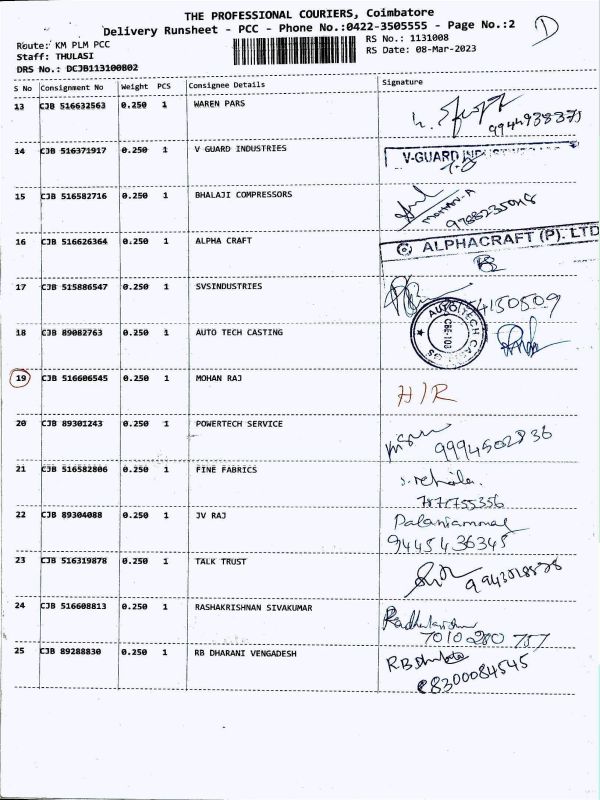 THE PROFESSIONAL COURIERS, Coimbatore
Delivery Runsheet - PCC - Phone No.:0422-3505555 - Page No.:2
Route: KM PLM PCC
RS No.: 1131008
Staff: THULASI
RS Date: 08-Mar-2023
DRS No.: DCJB113100802
S No Consignment No Weight PCS Consignee Details Signature
13 CJB 516632563 0.250 1 WAREN PARS
9944938375
14 CJB 516371917 0.250 1 V GUARD INDUSTRIES
V-GUARD
15 CJB 516582716 0.250 1 BHALAJI COMPRESSORS
MOHAN.A
16 CJB 516626364 0.250 1 ALPHA CRAFT
ALPHACRAFT (P). LTD
17 CJB 515886547 0.250 1 SVSINDUSTRIES
18 CJB 89082763 0.250 1 AUTO TECH CASTING
AUTO TECH
19 CJB 516606545 0.250 1 MOHAN RAJ
H/R
20 CJB 89301243 0.250 1 POWERTECH SERVICE
9994502836
21 CJB 516582806 0.250 1 FINE FABRICS
22 CJB 89304088 0.250 1 JV RAJ
Palaniammal
9445436345
23 CJB 516319878 0.250 1 TALK TRUST
24 CJB 516608813 0.250 1 RASHAKRISHNAN SIVAKUMAR
7010280757
25 CJB 89288830 0.250 1 RB DHARANI VENGADESH
8300084545